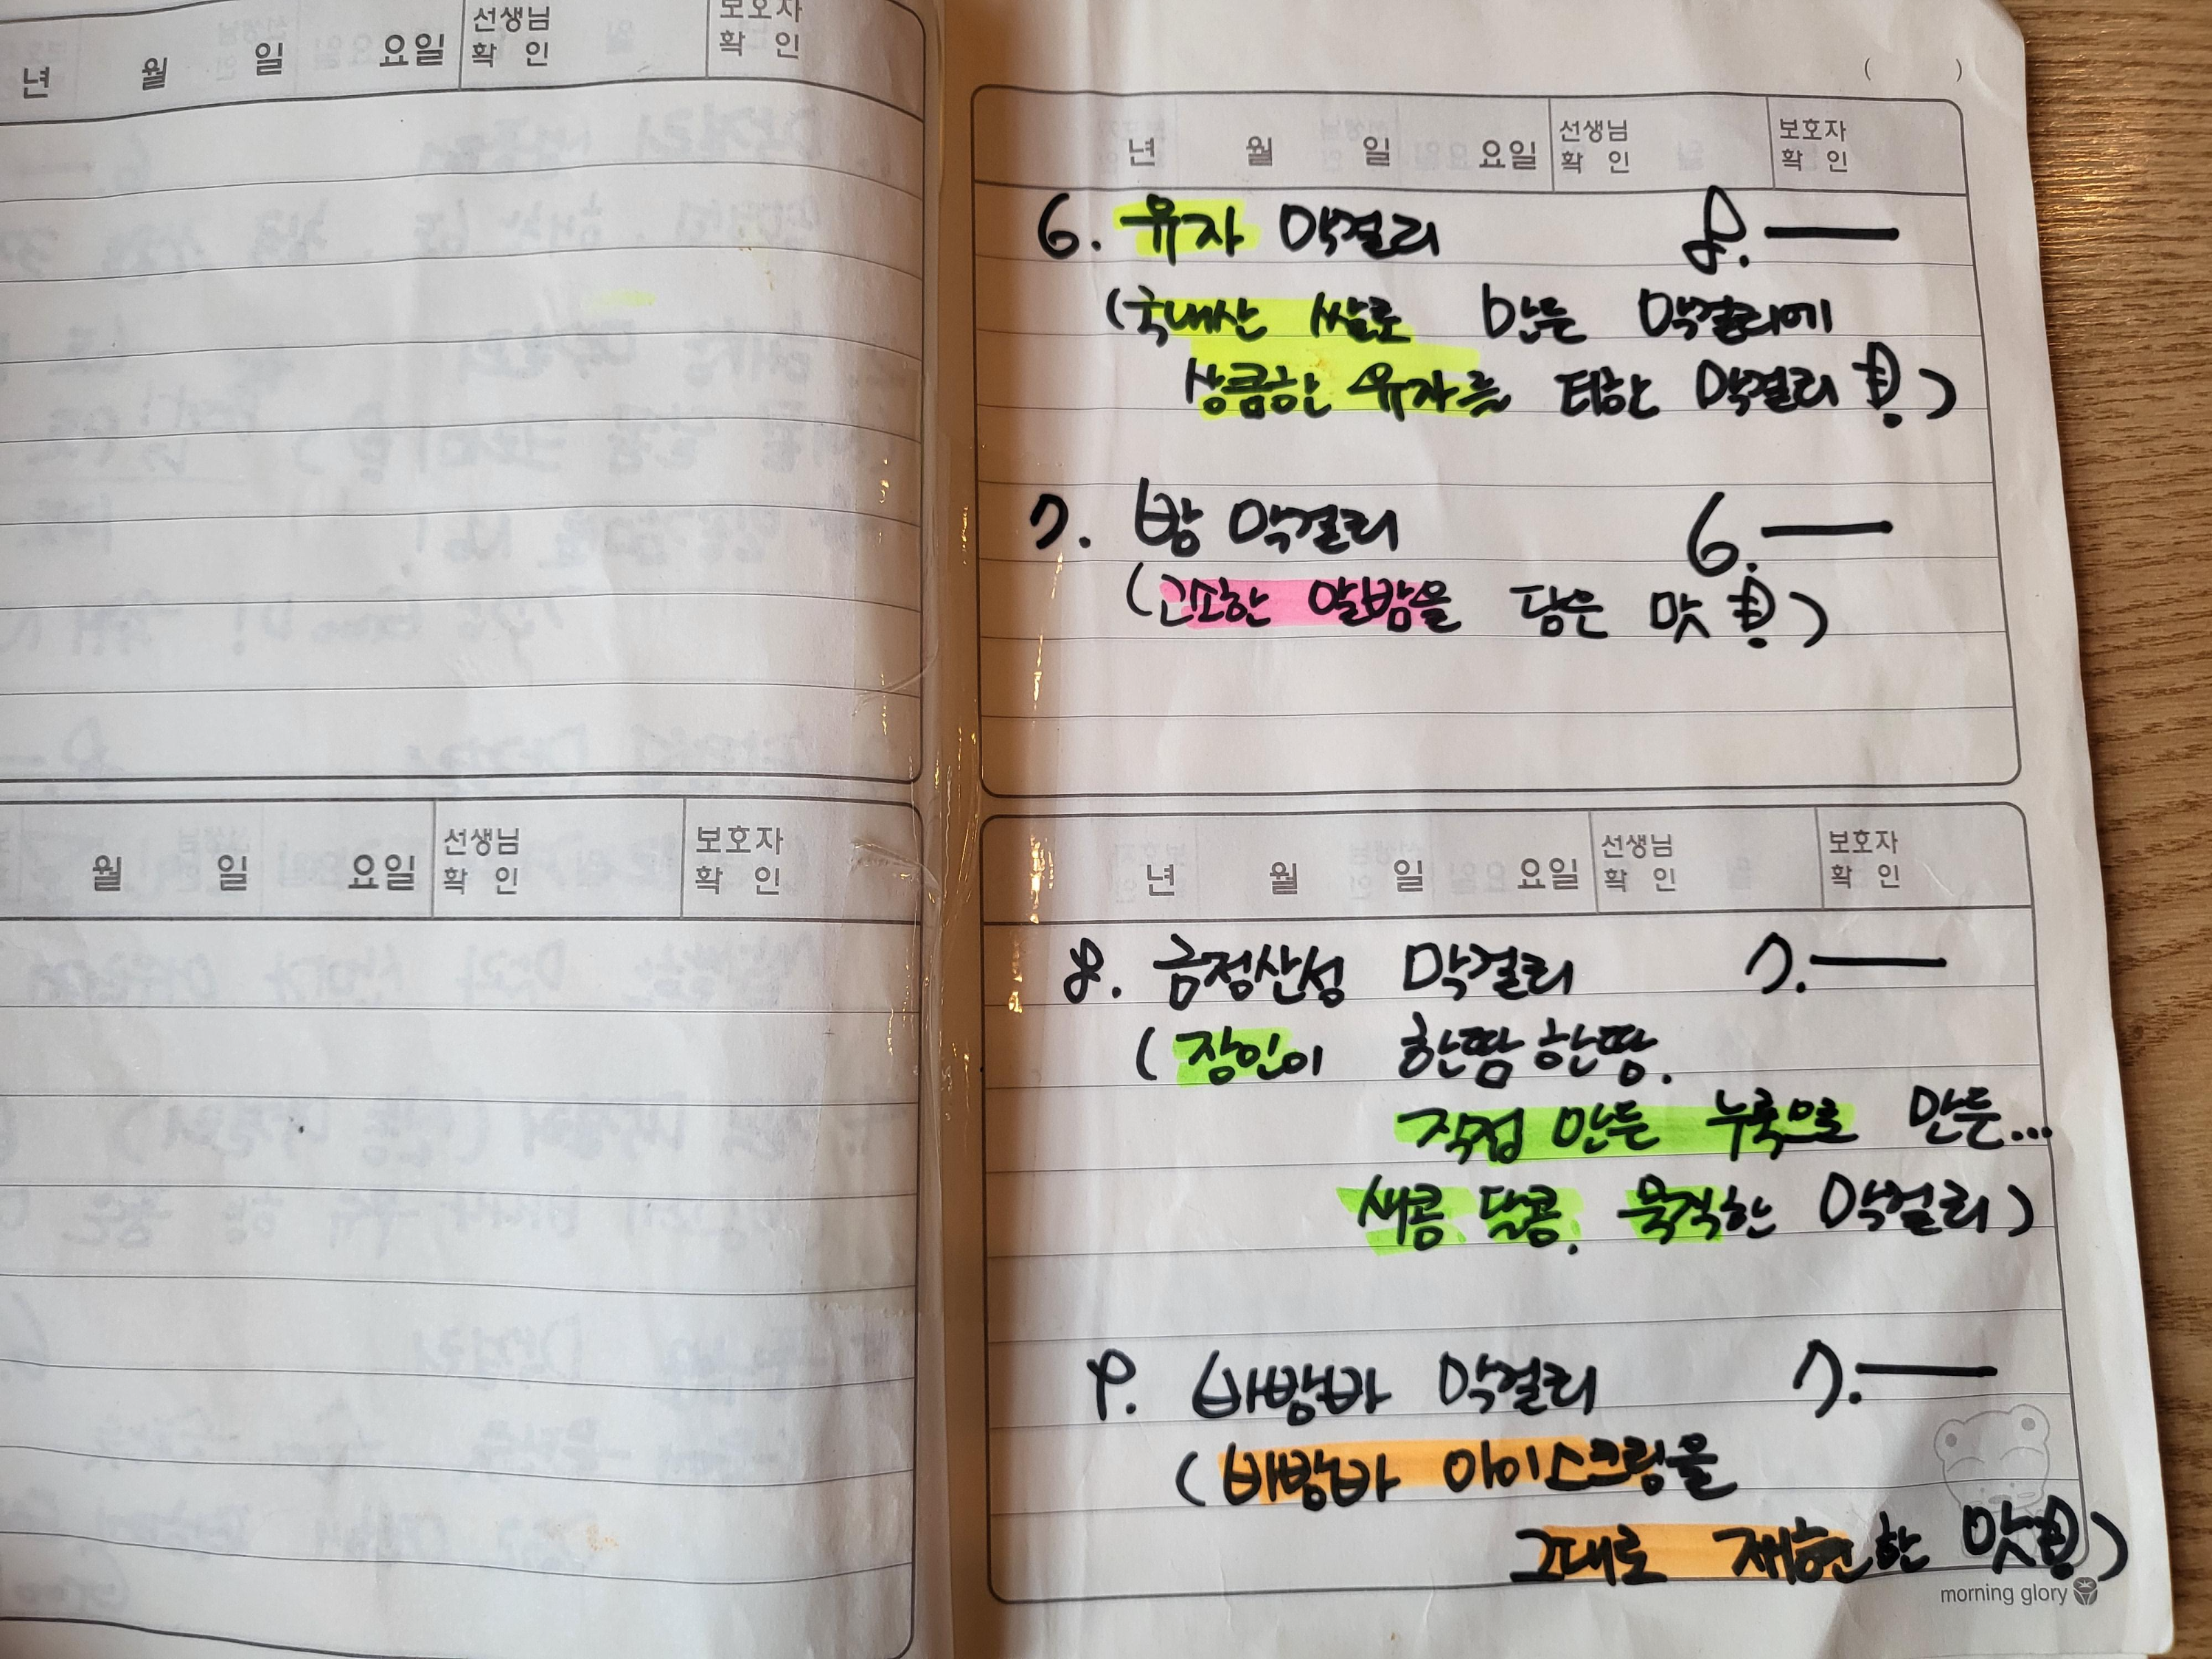 년 월 일 요일 선생님 확 인 보호자 확 인
월 일 요일 선생님 확 인 보호자 확 인
( )
년 월 일 요일 선생님 확 인 보호자 확 인
6. 유자 막걸리 8.—
(국내산 쌀로 만든 막걸리에
상큼한 유자를 더한 막걸리!)
7. 밤 막걸리 6.—
(고소한 알밤을 담은 맛!)
년 월 일 요일 선생님 확 인 보호자 확 인
8. 금정산성 막걸리 7.—
(장인이 한땀한땀.
직접 만든 누룩으로 만든...
새콤 달콤. 묵직한 막걸리)
9. 바밤바 막걸리 7.—
(바밤바 아이스크림을
그대로 재현한 맛!)
morning glory